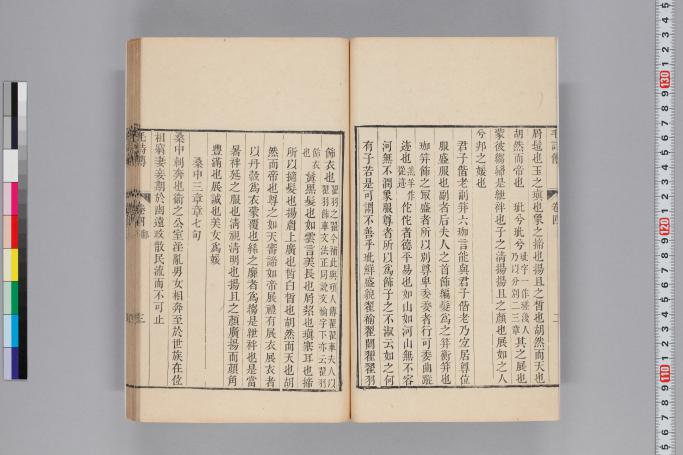 屑髢也玉之瑱也象之揥也揚且之皙也胡然而天也
胡然而帝也　玼兮玼兮玼字一作瑳後人乃以分別二三章其之展也
蒙彼縐絺是紲袢也子之清揚揚且之顏也展如之人
兮邦之媛也
君子偕老副笄六珈言能與君子偕老乃宜居尊位
服盛服也副者后夫人之首飾編髮爲之笄衡笄也
珈笄飾之最盛者所以別尊卑委委者行可委曲蹤
迹也佗佗者德平易也如山如河山無不容
河無不潤象服尊者所以爲飾子之不淑云如之何
有子若是可謂不善乎玼鮮盛貌翟褕翟闕翟翟羽
飾衣也
鬒黑髮也如雲言美長也屑絜也瑱塞耳也揥
所以摘髮也揚眉上廣也皙白皙也胡然而天也胡
然而帝也尊之如天審諦如帝展禮有展衣展衣者
以丹縠爲衣蒙覆也絺之靡者爲縐是紲袢也是當
暑袢延之服也清視清明也揚且之顏廣揚而顏角
豐滿也展誠也美女爲媛
桑中三章章七句
桑中刺奔也衞之公室淫亂男女相奔至於世族在位
相竊妻妾期於幽遠政散民流而不可止
毛詩傳
卷四